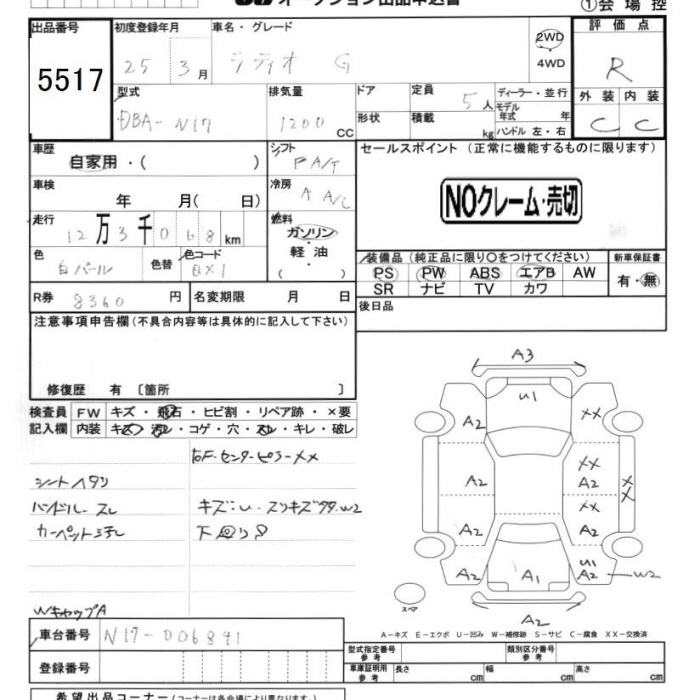 オークション出品申込書 ①会場控
出品番号 初度登録年月 車名・グレード 評価点
5517 25 3月 ラティオ G 2WD 4WD R
型式 排気量 ドア 定員 ディーラー・並行 外装 内装
DBA-N17 1200 CC 形状 積載 5人 kg モデル年式 年 ハンドル 左・右 C C
車歴 シフト セールスポイント (正常に機能するものに限ります)
自家用・( ) FA/T
車検 冷房 NOクレーム・売切
年 月( 日) A A/C
走行 燃料
12万3千068km ガソリン・軽油・( )
色 色替 色コード 装備品 (純正品に限り○をつけてください) 新車保証書
白パール QX1 PS PW ABS エアB AW 有・無
SR ナビ TV カワ
R券 8360円 名変期限 月 日 後日品
注意事項申告欄 (不具合内容等は具体的に記入して下さい)
修復歴 有 [箇所 ]
検査員 FW キズ・飛石・ヒビ割・リペア跡・×要
記入欄 内装 キズ・汚レ・コゲ・穴・スレ・キレ・破レ
右F.センターピラーXX
シートヘタリ
ハンドルスレ キズ:U・スリキズタタ.W2
カーペット汚レ 下回りS
WキャップA
A3
U1
A2 XX
XX
A2 XX
A2 XX
A2
U1
A2 A1 A2 W2
スペア
A2
A-キズ E-エクボ U-凹み W-補修跡 S-サビ C-腐食 XX-交換済
車台番号 N17-006891 型式指定番号 参考 類別区分番号 参考
登録番号 車庫証明用 参考 長さ cm 幅 cm 高さ cm
希望出品コーナー (コーナーは各会場により異なります。)